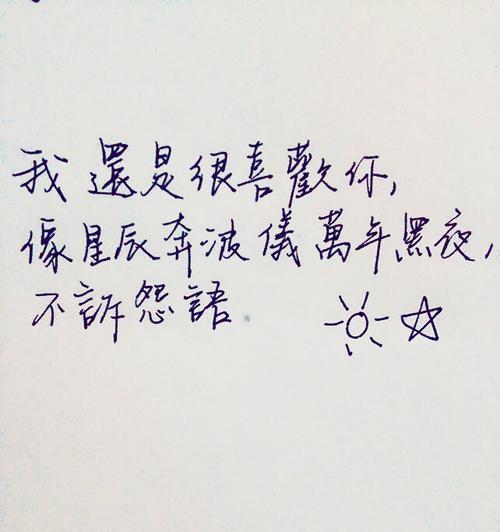 我還是很喜歡你,
像星辰奔波儀萬年黑夜,
不訴怨語.